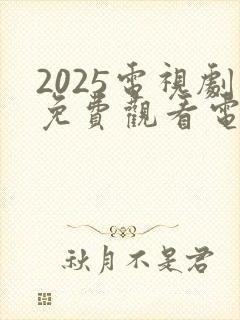 2025電視劇
免費觀看電
秋月不是君